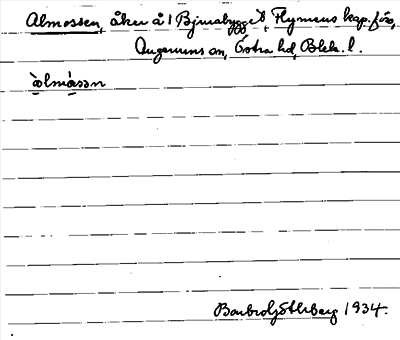 Almossen, åker å 1 Bjurabygget, Flymens kap.förs,
Augerums sn, Östra hd, Blek. l.
àlmásən
Barbro Söderberg 1934.